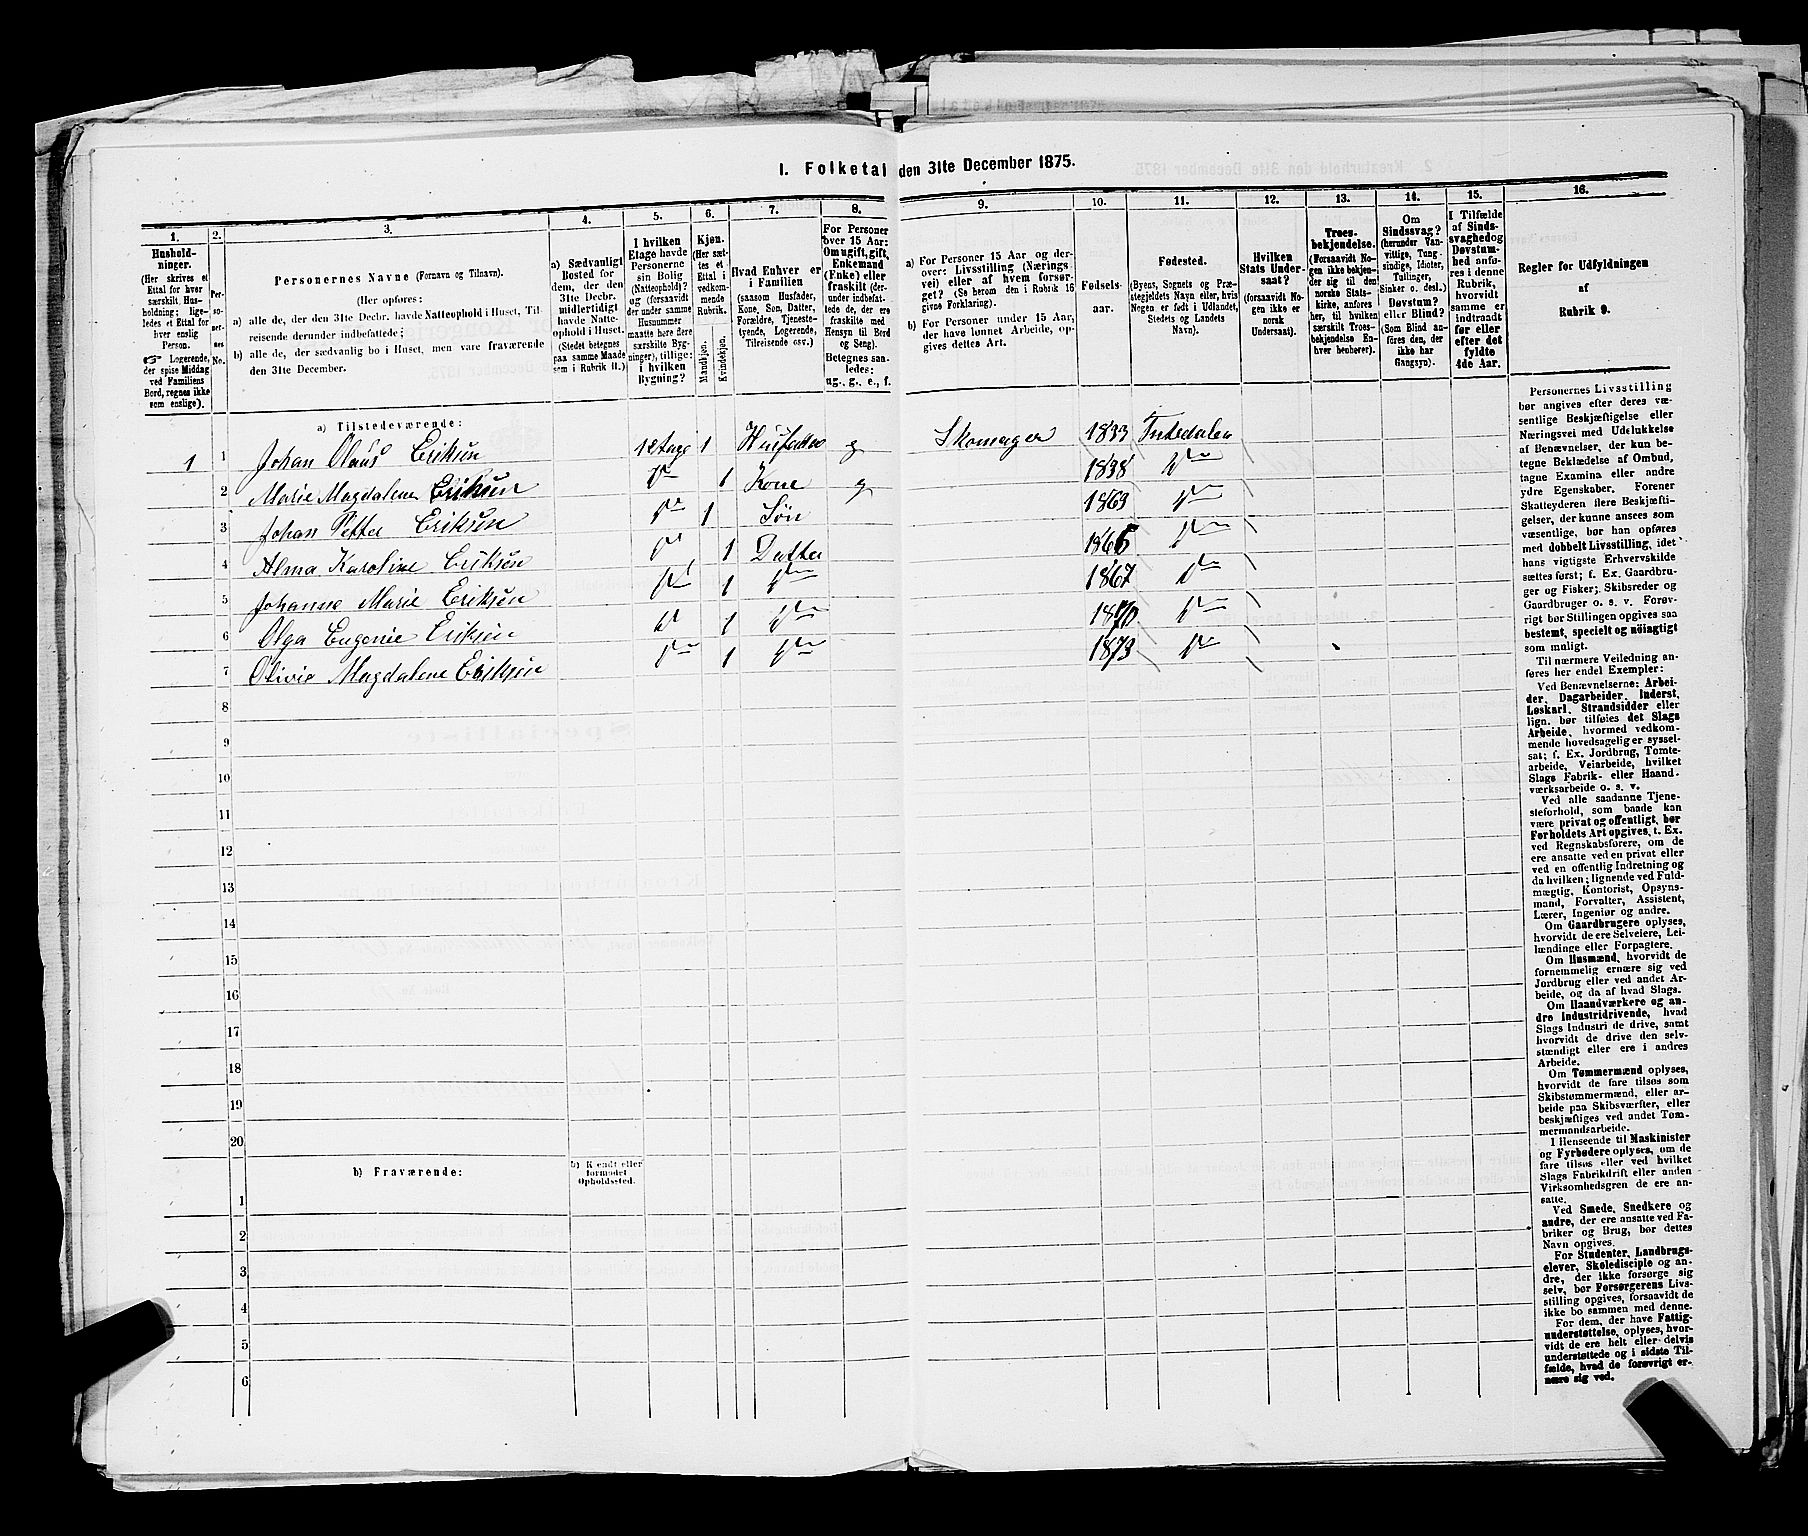 I. Folketal den 31te December 1875.
1. 2. 3. 4. 5. 6. 7. 8. 9. 10. 11. 12. 13. 14. 15. 16.
Hushold-
ninger.
(Her skrives et
Ettal for hver
særskilt Hus-
holdning; lige-
ledes et Ettal for
hver enslig
Person.
☞ Logerende,
der spise Middag
ved Familiens
Bord, regnes ikke
som enslige).
Per-
so-
ner-
nes
No.
Personernes Navne (Fornavn og Tilnavn).
(Her opføres:
a) alle de, der den 31te Decbr. havde Natteophold i Huset, Til-
reisende derunder indbefattede;
b) alle de, der sædvanlig bo i Huset, men vare fraværende
den 31te December.
a) Sædvanligt
Bosted for
dem, der den
31te Decbr.
midlertidigt
havde Natte-
ophold i Huset.
(Stedet betegnes
paa samme Maade
som i Rubrik 11.)
I hvilken
Etage havde
Personerne
sin Bolig
(Natteophold)?
og (forsaavidt
der under samme
Husnummer
maatte høre flere
særskilte Byg-
ninger), tillige:
i hvilken
Bygning?
Kjøn.
(Her sæt-
tes et
Ettal i
vedkom-
mende
Rubrik.
Mandkjøn.
Kvindekjøn.
Hvad Enhver er
i Familien
(saasom Husfader,
Kone, Søn, Datter,
Forældre, Tjeneste-
tyende, Logerende,
Tilreisende osv.)
For Personer
over 15 Aar:
Om ugift, gift,
Enkemand
(Enke) eller
fraskilt (der-
under indbefat-
tede de, der ere
fraskilte med
Hensyn til Bord
og Seng).
Betegnes saa-
ledes:
ug., g., e., f.
a) For Personer 15 Aar og der-
over: Livsstilling (Nærings-
vei) eller af hvem forsør-
get? (Se herom den i Rubrik 16
givne Forklaring).
b) For Personer under 15 Aar,
der have lønnet Arbeide, op-
gives dettes Art.
Fødsels-
aar.
Fødested.
(Byens, Sognets og Præ-
stegjeldets Navn eller, hvis
Nogen er født i Udlandet,
Stedets og Landets
Navn).
Hvilken
Stats Under-
saat?
(forsaavidt No-
gen ikke er
norsk
Undersaat).
Troes-
bekjendelse.
(Forsaavidt No-
gen ikke bekjen-
der sig til den
norske Stats-
kirke, anføres
her, til hvilken
særskilt Troes-
bekjendelse En-
hver henhører).
Om
Sindssvag?
(herunder Van-
vittige, Tung-
sindige, Idioter,
Tullinger,
Sinker o. desl.)
Døvstum?
eller Blind?
(Som Blind an-
føres den, der
ikke har
Gangsyn).
I Tilfælde
af Sinds-
svaghed og
Døvstum-
hed anfø-
res i denne
Rubrik,
hvorvidt
samme er
indtraadt
før eller
efter det
fyldte
4de Aar.
Regler for Udfyldningen
af
Rubrik 9.
a) Tilstedeværende:
1 1 Johan Olaus Eriksen 1 Etage 1 Husfader g Skomager 1833 Tistedalen
2 Marie Magdalene Eriksen Do 1 Kone g 1838 Do
3 Johan Petter Eriksen Do 1 Søn 1863 Do
4 Alma Karoline Eriksen Do 1 Datter 1866 Do
5 Johanne Marie Eriksen Do 1 Do 1867 Do
6 Olga Eugenie Eriksen Do 1 Do 1870 Do
7 Olivie Magdalene Eriksen Do 1 Do 1873 Do
8
9
10
11
12
13
14
15
16
17
18
19
20
b) Fraværende:
b) Kjendt eller
formodet
Opholdssted.
1
2
3
4
5
6
Personernes Livsstilling
bør angives efter deres væ-
sentlige Beskjæftigelse eller
Næringsvei med Udelukkelse
af Benævnelser, der kun be-
tegne Beklædelse af Ombud,
tagne Examina eller andre
ydre Egenskaber. Forener
Skatteyderen flere Beskjæfti-
gelser, der kunne ansees som
væsentlige, bør han opføres
med dobbelt Livsstilling, idet
hans vigtigste Erhvervskilde
sættes først; f. Ex. Gaardbru-
ger og Fisker; Skibsreder og
Gaardbruger o. s. v. Forøv-
rigt bør Stillingen opgives saa
bestemt, specielt og nøiagtigt
som muligt.
Til nærmere Veiledning an-
føres her endel Exempler:
Ved Benævnelserne: Arbei-
der, Dagarbeider, Inderst,
Løskarl, Strandsidder eller
lign. bør tilføies det Slags
Arbeide, hvormed vedkom-
mende hovedsagelig er syssel-
sat; f. Ex. Jordbrug, Tomte-
arbeide, Veiarbeide, hvilket
Slags Fabrik- eller Haand-
værksarbeide o. s. v.
Ved alle saadanne Tjene-
steforhold, som baade kan
være privat og offentligt, bør
Forholdets Art opgives, t. Ex.
ved Regnskabsførere, om de
ere ansatte ved en privat eller
ved en offentlig Indretning og
da hvilken; lignende ved Fuld-
mægtig, Kontorist, Opsyns-
mand, Forvalter, Assistent,
Lærer, Ingeniør og andre.
Om Gaardbrugere oplyses,
hvorvidt de ere Selveiere, Lei-
lændinge eller Forpagtere.
Om Husmænd, hvorvidt de
fornemmelig ernære sig ved
Jordbrug eller ved andet Ar-
beide, og da af hvad Slags.
Om Haandværkere og an-
dre Industridrivende, hvad
Slags Industri de drive, samt
hvorvidt de drive den selv-
stændigt eller ere i andres
Arbeide.
Om Tømmermænd oplyses,
hvorvidt de fare tilsøs som
Skibstømmermænd, eller ar-
beide paa Skibsværfter, eller
beskjæftiges ved andet Tøm-
mermandsarbeide.
I Henseende til Maskinister
og Fyrbødere oplyses, om de
fare tilsøs eller ved hvilket
Slags Fabrikdrift eller anden
Virksomhedsgren de ere an-
satte.
Ved Smede, Snedkere og
andre, der ere ansatte ved Fa-
briker og Brug, bør dettes
Navn opgives.
For Studenter, Landbrugs-
elever, Skoledisciple og an-
dre, der ikke forsørge sig
selv, bør Forsørgerens Livs-
stilling opgives, forsaavidt de
ikke bo sammen med denne.
For dem, der have Fattig-
understøttelse, oplyses, hvor-
vidt de ere helt eller delvis
understøttede og i sidste Til-
fælde, hvad de forøvrigt er-
nære sig ved.